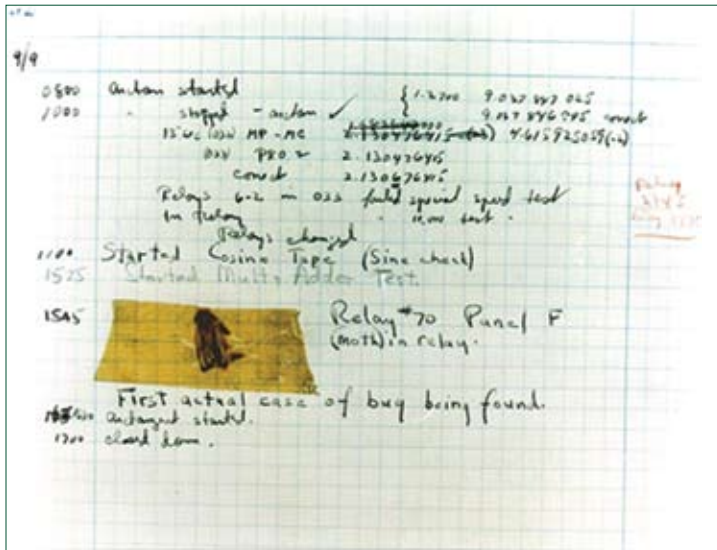 9/9
0800 antan started
1000 " stopped - antan ✓ { 1.2700 9.037 847 025
9.037 846 995 correct
13"uc (032) MP - MC 2.130476415 4.615925059(-2)
(033) PRO 2 2.130476415
correct 2.130676415
Relays 6-2 in 033 failed special speed test
In Relay " test .
Relays changed
1100 Started Cosine Tape (Sine check)
1525 Started Mult + Adder Test.
1545 Relay #70 Panel F
(moth) in relay.
First actual case of bug being found.
antangent started.
1700 closed down.